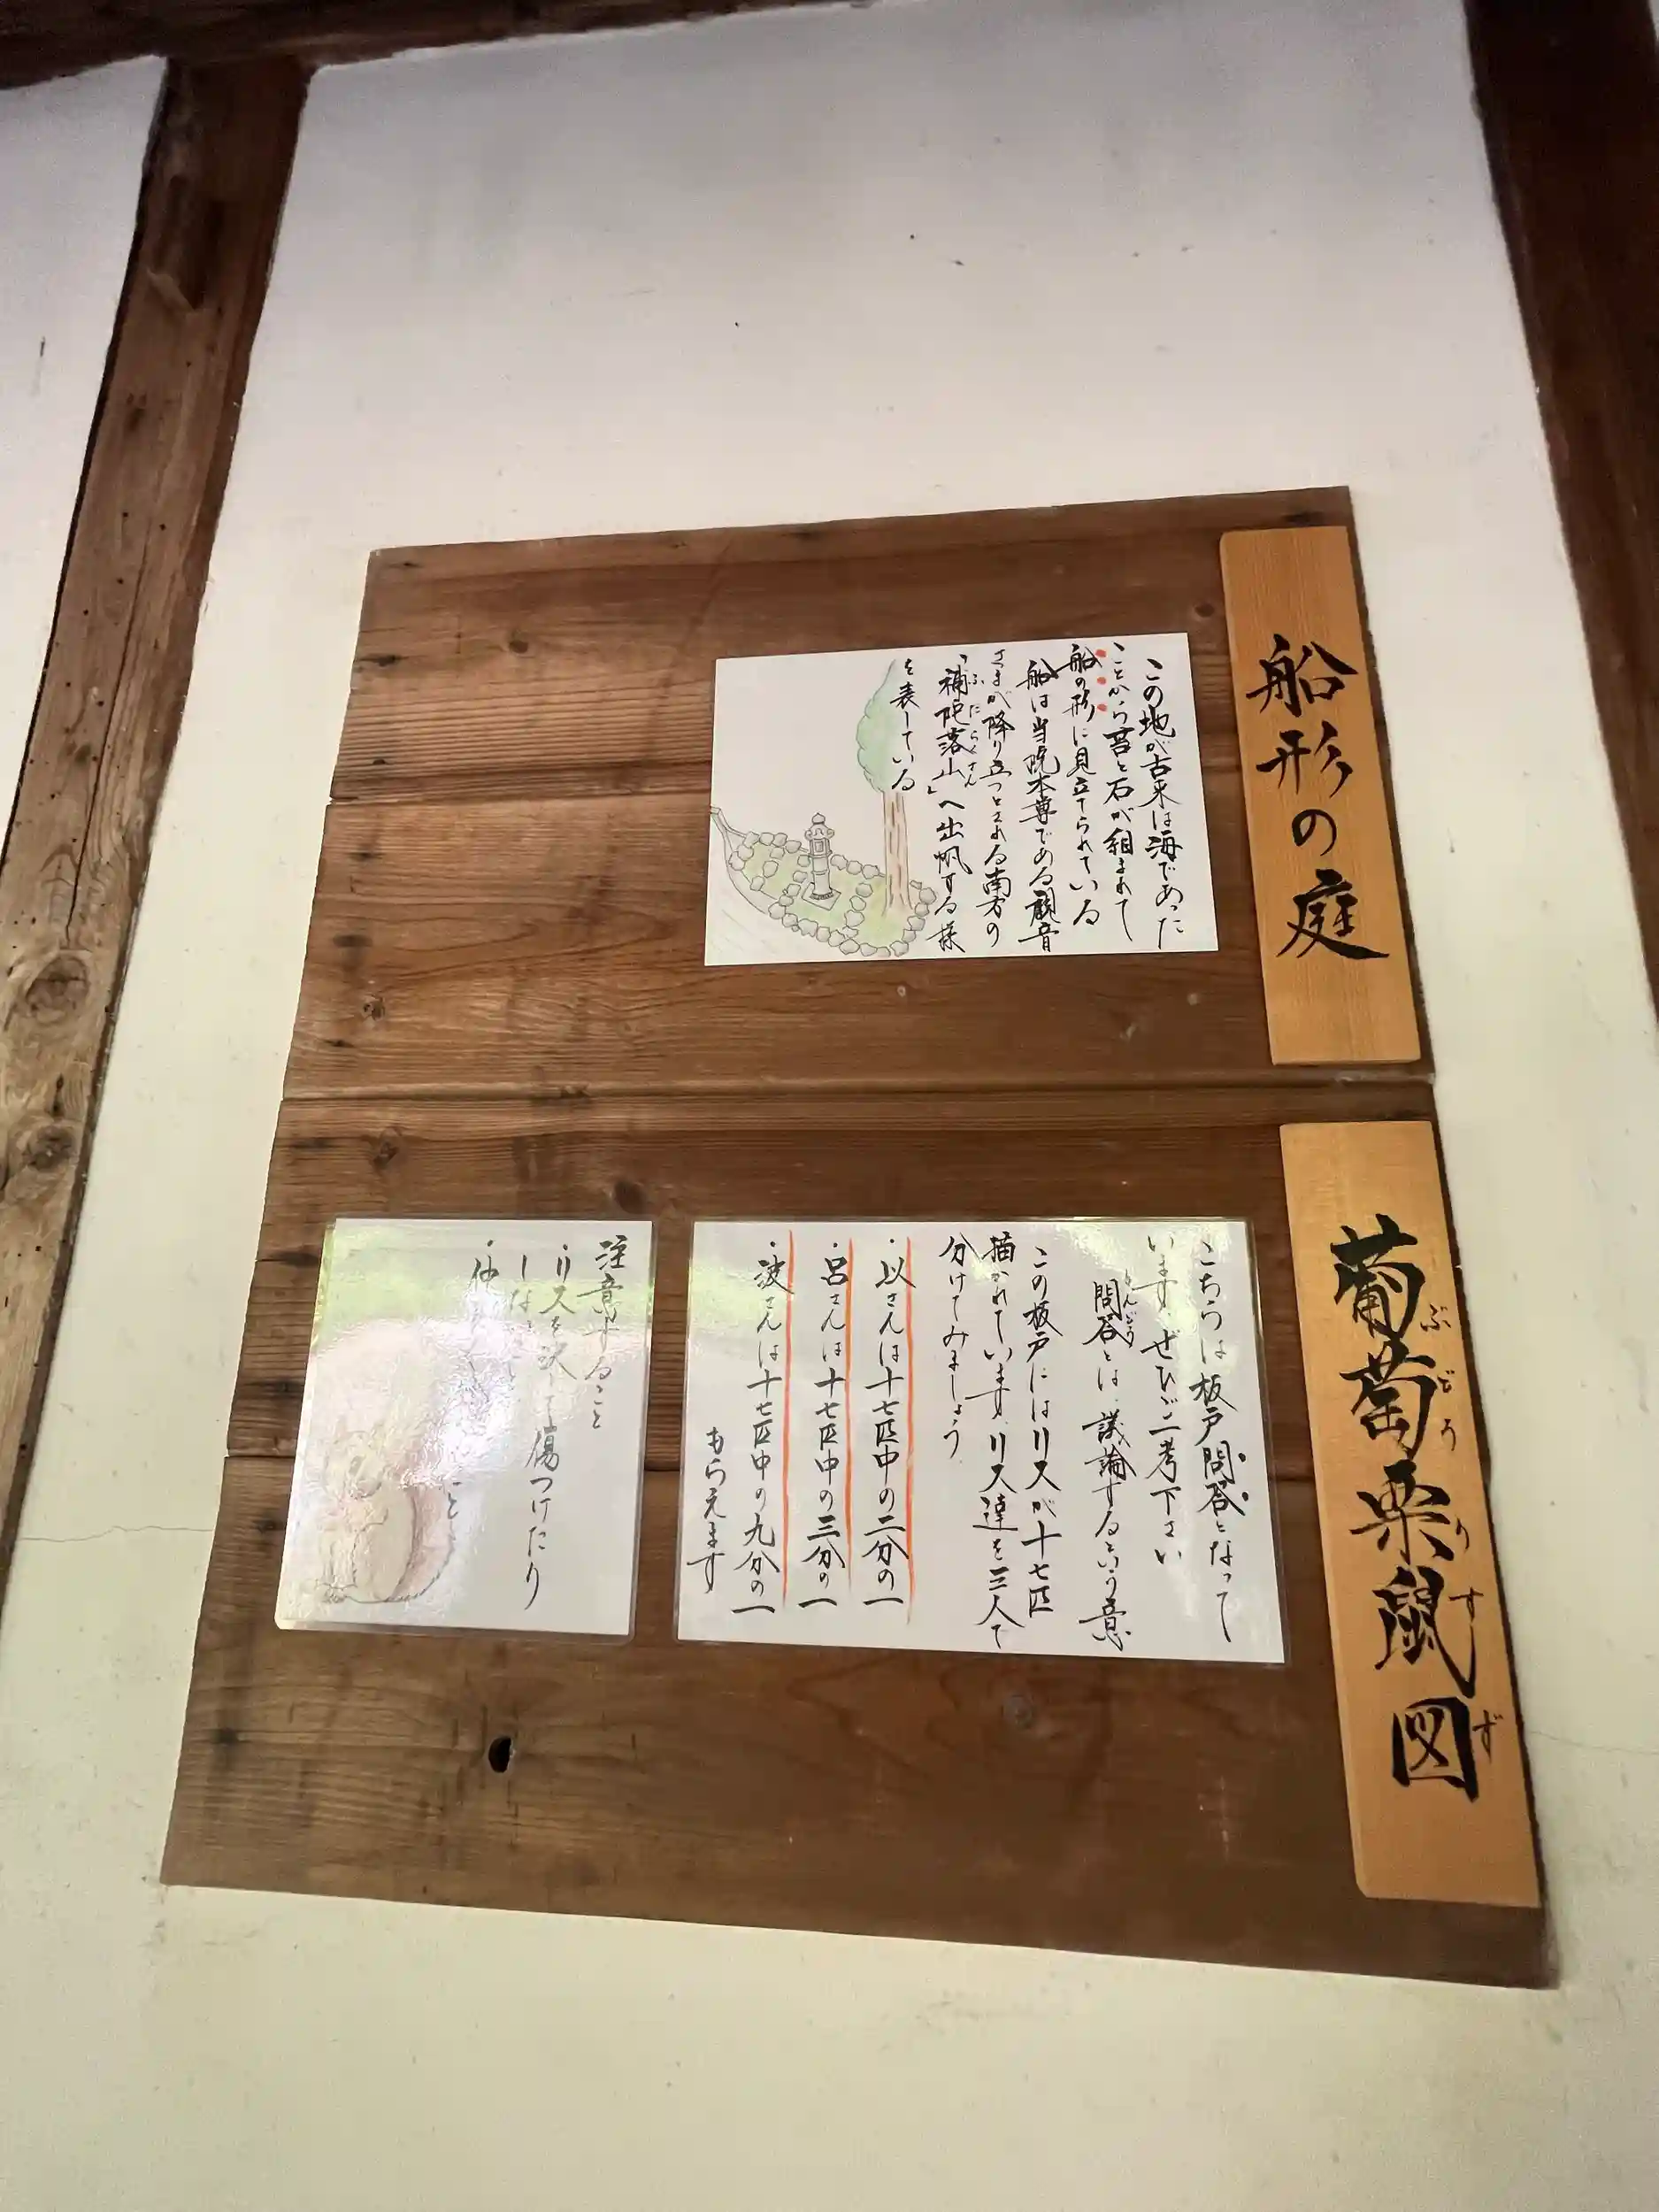 船形の庭
この地が古来は海であった
ことから苔と石が組まれて
船の形に見立てられている
船は当院本尊である観音
さまが降り立つとされる南方の
「補陀落山」へ出帆する様
ふだらくさん
を表している
葡萄栗鼠図
ぶどうりすず
こちらは板戸問答となって
います。ぜひご一考下さい
問答とは、議論するという意
もんどう
この板戸にはリスが十七匹
描かれています。リス達を三人で
分けてみましょう。
・以さんは十七匹中の二分の一
・呂さんは十七匹中の三分の一
・波さんは十七匹中の九分の一
もらえます
注意すること
・リスを決して傷つけたり
しな
・仲
こと